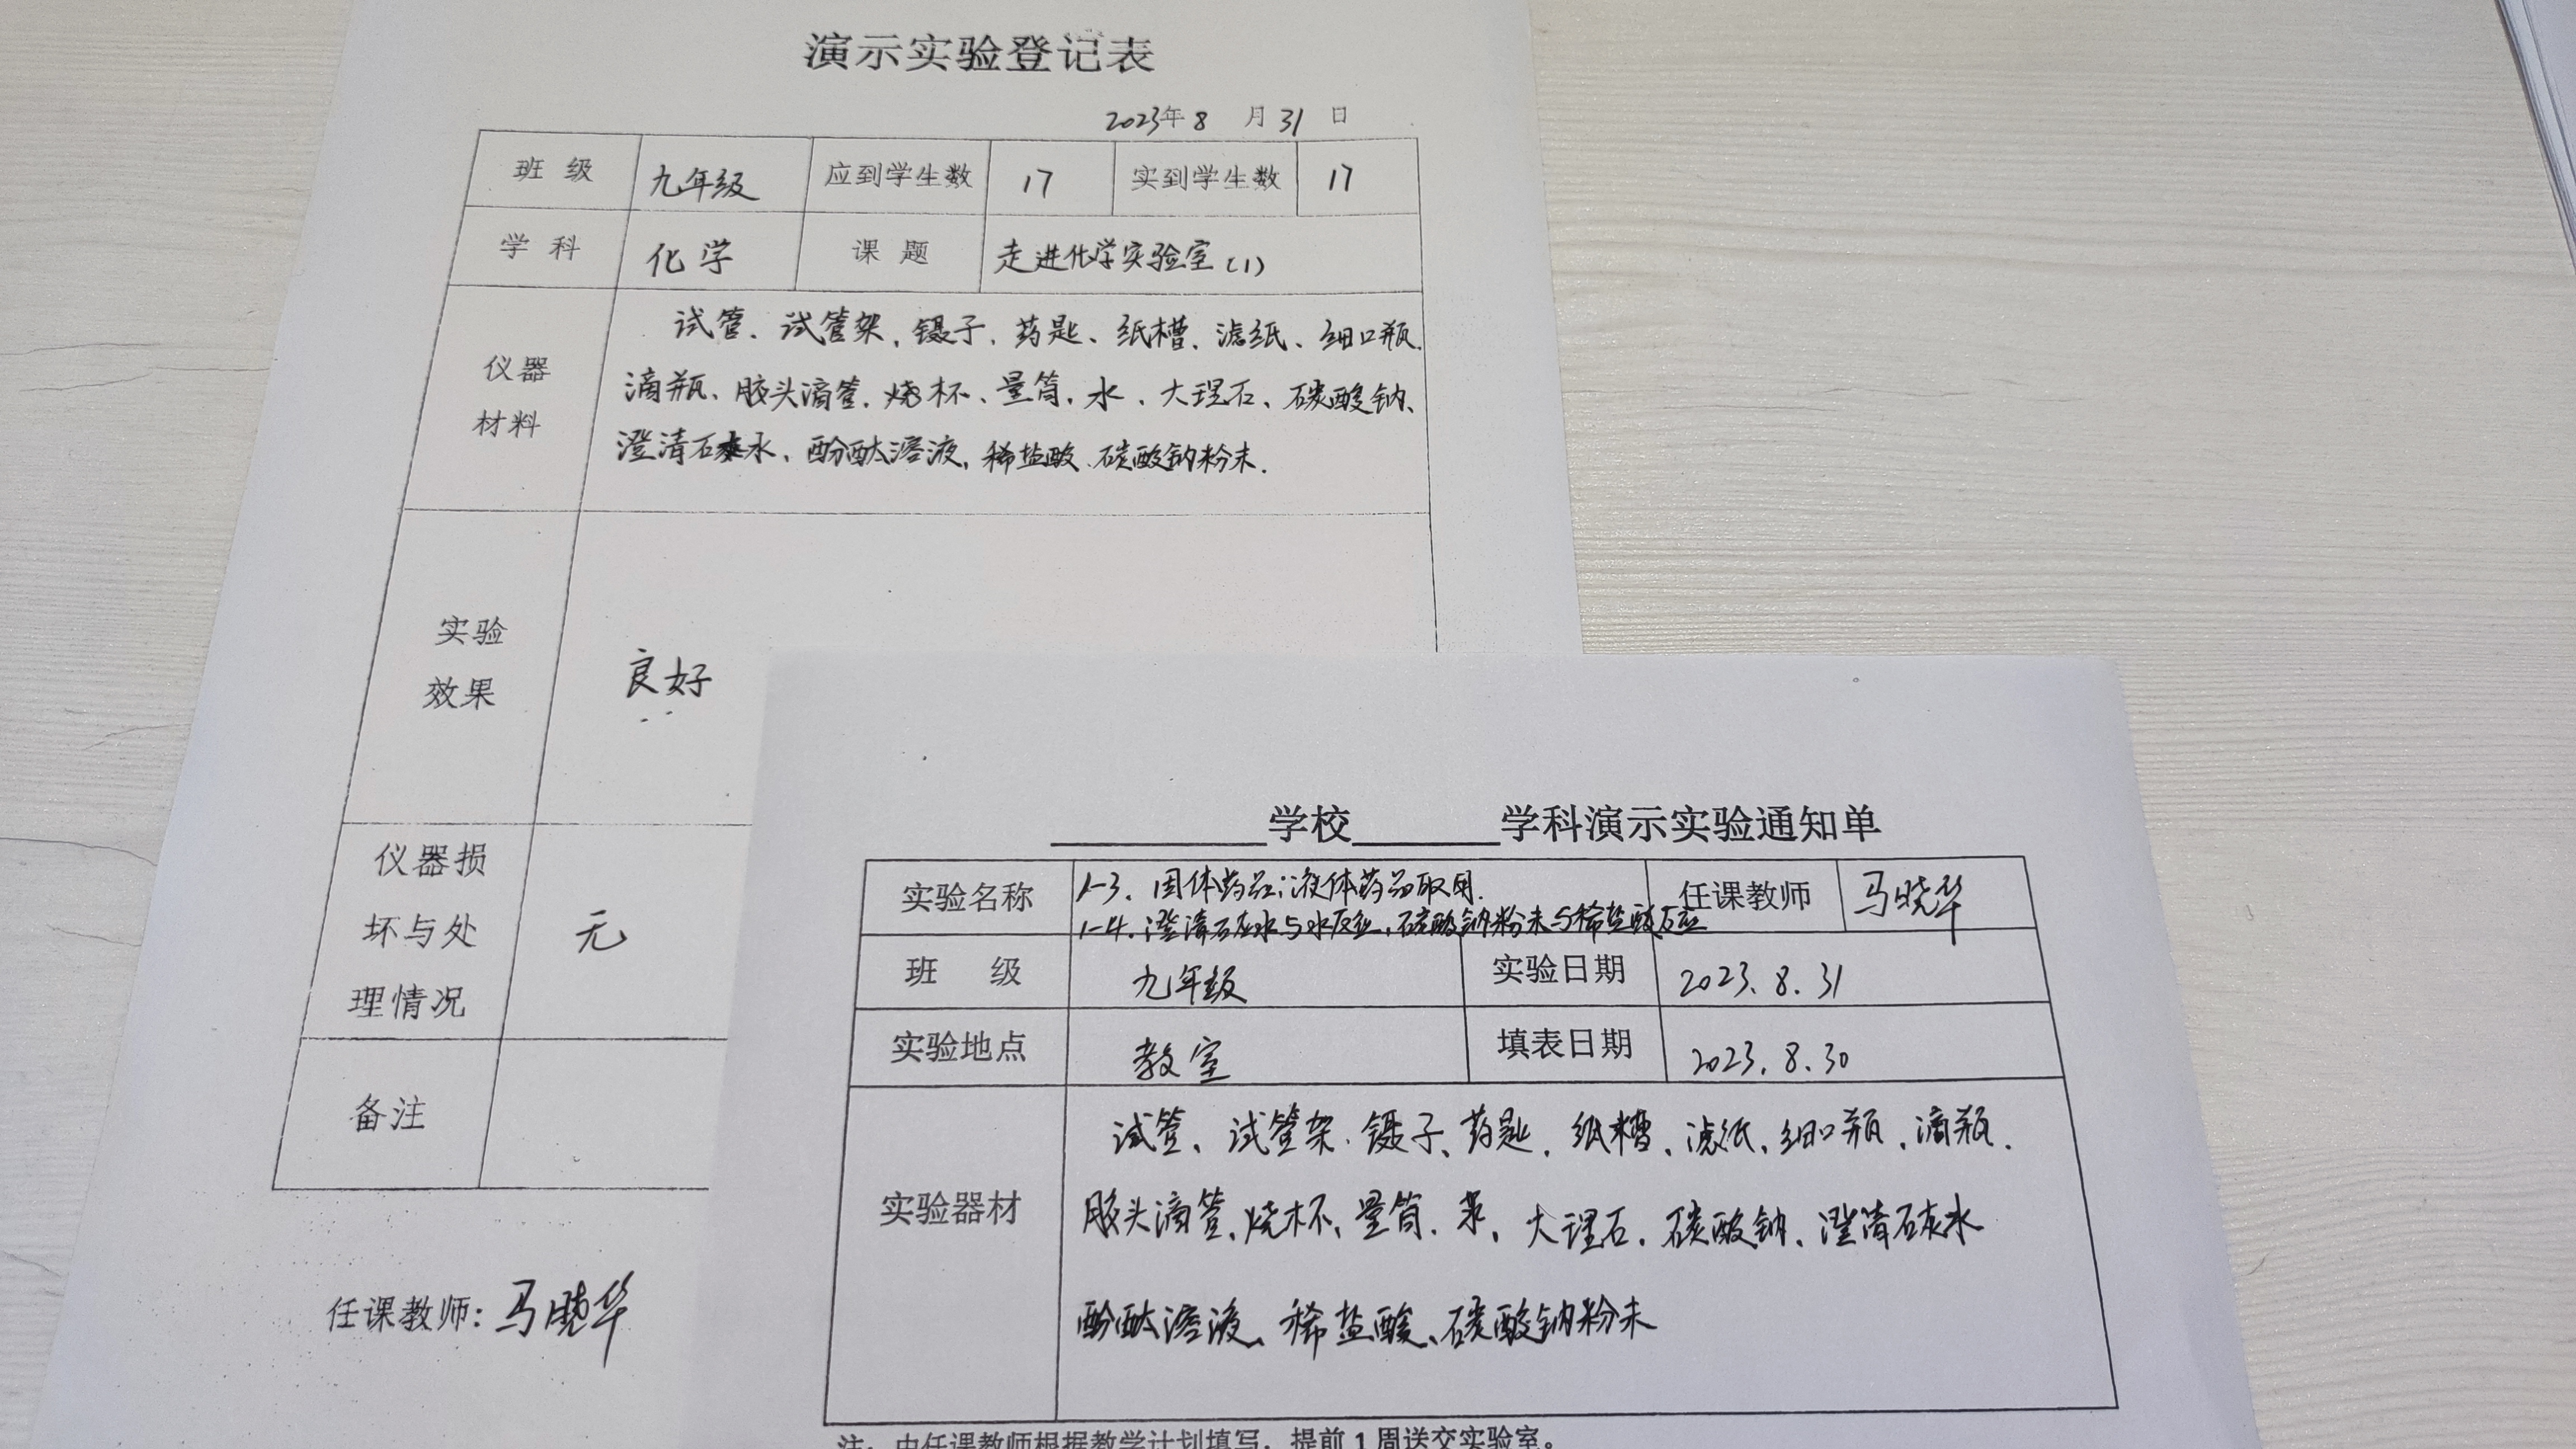 演示实验登记表
2023年 8 月 31 日
班 级 九年级 应到学生数 17 实到学生数 17
学 科 化学 课 题 走进化学实验室(1)
仪器
材料
试管、试管架、镊子、药匙、纸槽、滤纸、细口瓶、
滴瓶、胶头滴管、烧杯、量筒、水、大理石、碳酸钠、
澄清石灰水、酚酞溶液、稀盐酸、碳酸钠粉末.
实验
效果
良好
仪器损
坏与处
理情况
无
备注
任课教师: 马晓华
学校 学科演示实验通知单
实验名称 1-3. 固体药品;液体药品取用.
1-4. 澄清石灰水与水反应,碳酸钠粉末与稀盐酸反应
任课教师 马晓华
班 级 九年级 实验日期 2023.8.31
实验地点 教室 填表日期 2023.8.30
实验器材
试管、试管架、镊子、药匙、纸槽、滤纸、细口瓶、滴瓶、
胶头滴管、烧杯、量筒、水、大理石、碳酸钠、澄清石灰水
酚酞溶液、稀盐酸、碳酸钠粉末
注: 由任课教师根据教学计划填写, 提前 1 周送交实验室。